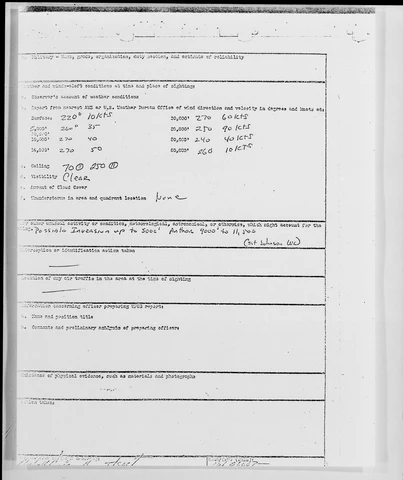 Military - Name, grade, organization, duty section, and estimate of reliability
Weather and winds-aloft conditions at time and place of sightings
a. Observer's account of weather conditions
b. Report from nearest AWS or U.S. Weather Bureau Office of wind direction and velocity in degrees and knots at:
Surface: 220° 10 KTS 20,000' 270 60 KTS
5,000' 260° 35 30,000' 250 90 KTS
10,000' 270 40 50,000' 240 40 KTS
16,000' 270 50 80,000' 260 10 KTS
c. Ceiling 70 250
d. Visibility CLEAR
e. Amount of Cloud Cover
f. Thunderstorms in area and quadrant location None
Any other unusual activity or condition, meteorological, astronomical, or otherwise, which might account for the
Possible Inversion up to 5000' Another 9000' to 11,500
Interception or identification action taken
Location of any air traffic in the area at the time of sighting
Information concerning officer preparing UFOB report:
a. Name and position title
b. Comments and preliminary analysis of preparing officer:
Existence of physical evidence, such as materials and photographs
Action taken: